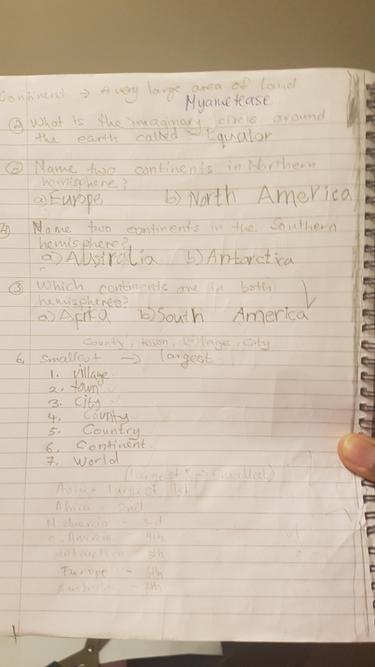 Continent → A very large area of land
Myanetease
② What is the imaginary circle around
the earth called → Equator
Name two continents in Northern
hemisphere?
a) Europe b) North America
Name two continents in the Southern
hemisphere?
a) Australia b) Antarctica
Which continents are in both
hemispheres?
a) Africa b) South America
County, town, village, City
6. Smallest → largest
1. village
2. town
3. City
4. County
5. Country
6. Continent
7. World
(largest → smallest)
Asia - largest 1st
Africa - 2nd
N. America - 3rd
S. America - 4th
antarctica - 5th
Europe - 6th
Australia - 7th